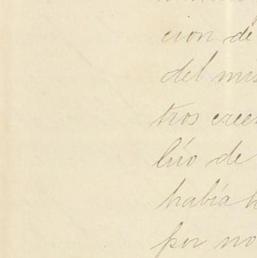 cion de
del mis
tros cree
lúo de
había h
por no